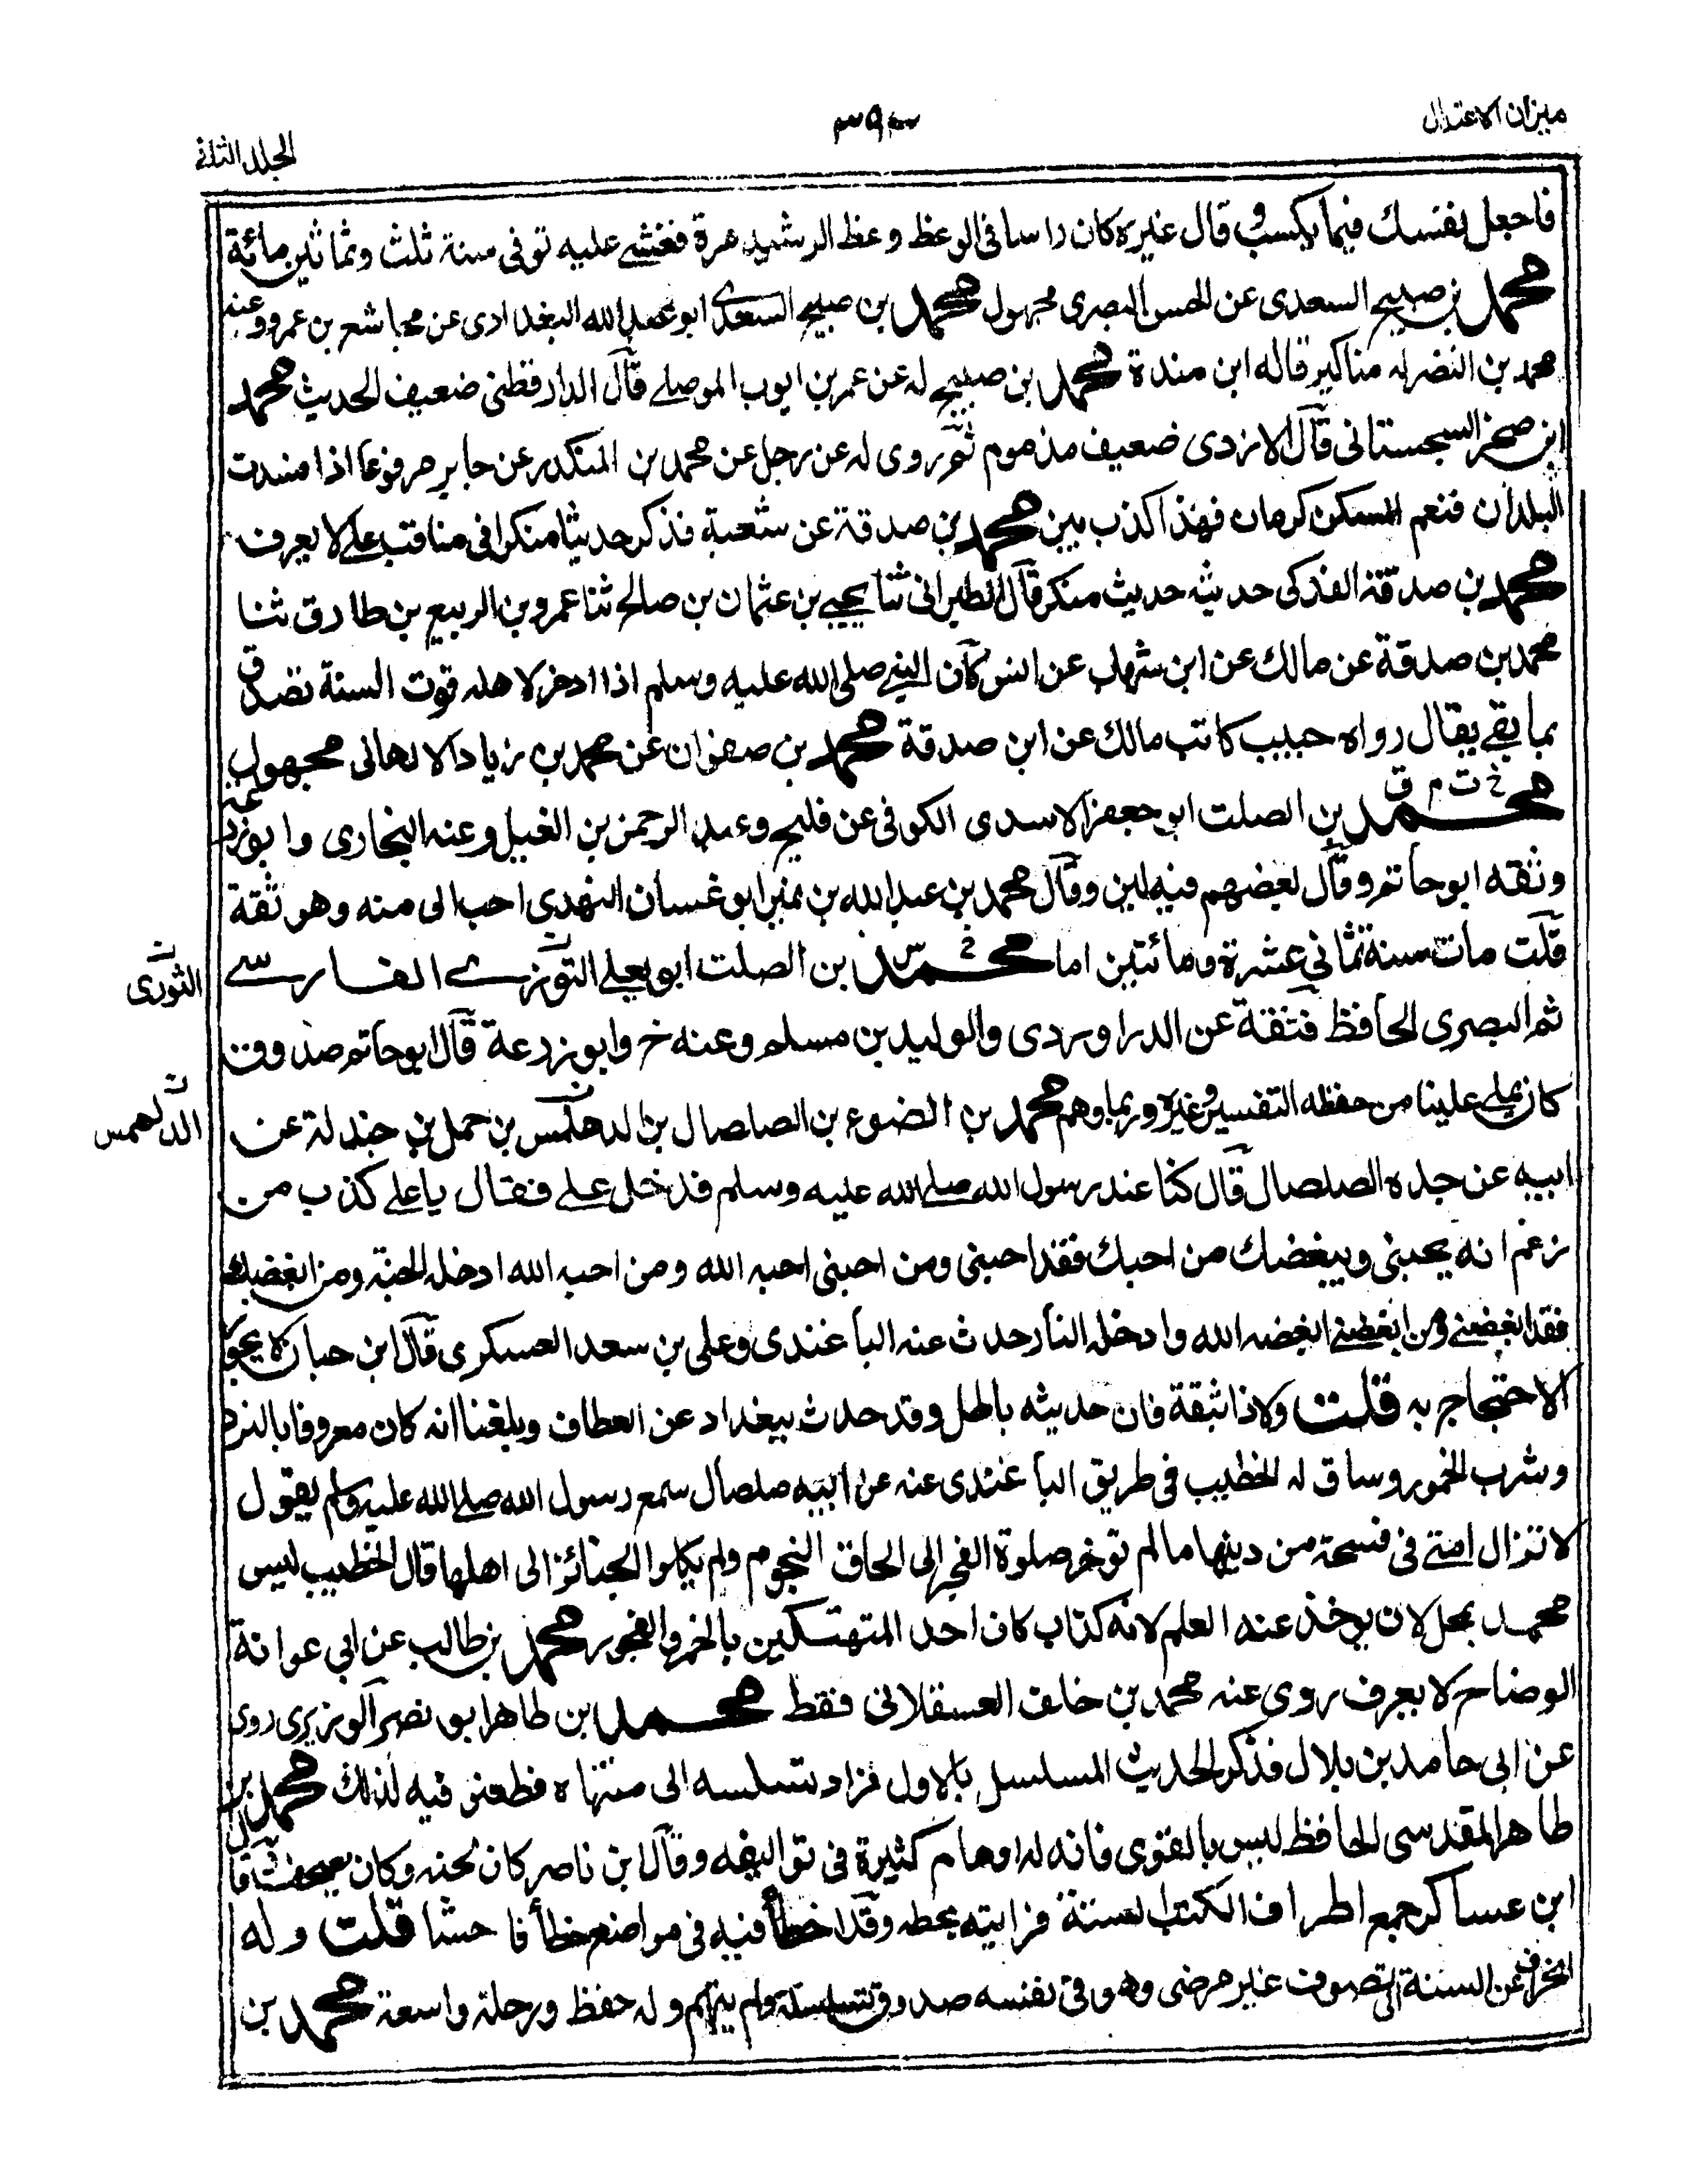 ميزان الاعتدال
٣٩٣
الجلد الثانى
فاجعل نفسك فيما يكسب وقال غيره كان راسا فى الوعظ وعظ الرشيد مرة فغشى عليه توفى سنة ثلث وثمانين ومائة
محمد بن صبيح السعدى عن الحسن البصرى مجهول محمد بن صبيح السعدى ابو عبد الله البغدادى عن مجاشع بن عمرو وعنه
محمد بن النضر له مناكير قاله ابن مندة محمد بن صبيح له عن عمر بن ايوب الموصلى قال الدارقطنى ضعيف الحديث محمد
ابن صخر السجستانى قال الازدى ضعيف مذموم ثم روى له عن رجل عن محمد بن المنكدر عن جابر مرفوعا اذا فسدت
البلدان فنعم المسكن كرمان فهذا كذب بين محمد بن صدقة عن شعبة فذكر حديثا منكرا فى مناقب على لا يعرف
محمد بن صدقة الفدكى حديثه حديث منكر قال الطبرانى ثنا يحيى بن عثمان بن صالح ثنا عمرو بن الربيع بن طارق ثنا
محمد بن صدقة عن مالك عن ابن شهاب عن انس كان النبى صلى الله عليه وسلم اذا ادخر لاهله قوت السنة تصدق
بما بقى يقال رواه حبيب كاتب مالك عن ابن صدقة محمد بن صفوان عن محمد بن زياد الالهانى مجهول
خ ت م ق
محمد بن الصلت ابو جعفر الاسدى الكوفى عن فليح وعبد الرحمن بن الغسيل وعنه البخارى وابو زرعة
وثقه ابو حاتم وقال بعضهم فيه لين وقال محمد بن عبد الله بن نمير ابو غسان النهدى احب الى منه وهو ثقة
قلت مات سنة ثمانى عشرة ومائتين اما محمد بن الصلت ابو يعلى التوزى الفارسى
الثورى
ثم البصرى الحافظ فثقة عن الدراوردى والوليد بن مسلم وعنه خ وابو زرعة قال ابو حاتم صدوق
كان يملى علينا من حفظه التفسير وغيره وربما وهم محمد بن الضوء بن الصلصال بن الدلهمس بن حمل بن جندلة عن
الدلهمس
ابيه عن جده الصلصال قال كنا عند رسول الله صلى الله عليه وسلم فدخل على فقال يا على كذب من
زعم انه يحبنى ويبغضك من احبك فقد احبنى ومن احبنى احبه الله ومن احبه الله ادخله الجنة ومن ابغضك
فقد ابغضنى ومن ابغضنى ابغضه الله وادخله النار حدث عنه الباغندى وعلى بن سعد العسكرى قال ابن حبان لا يجوز
الاحتجاج به قلت ولا ذا بثقة فان حديثه باطل وقد حدث ببغداد عن العطاف وبلغنا انه كان معروفا بالنرد
وشرب الخمور وساق له الخطيب فى طريق الباغندى عنه عن ابيه صلصال سمع رسول الله صلى الله عليه وسلم يقول
لا تزال امتى فى فسحة من دينها ما لم توخر صلوة الفجر الى الحاق النجوم ولم يكلوا الجنائز الى اهلها قال الخطيب ليس
محمد بمحل لان يوخذ عنه العلم لانه كذاب كان احد المتهتكين بالخمر والفجور محمد بن طالب عن ابي عوانة
الوضاح لا يعرف روى عنه محمد بن خلف العسقلانى فقط محمد بن طاهر ابو نصر الوزيرى روى
عن ابى حامد بن بلال فذكر الحديث المسلسل بالاول فزاد تسلسله الى منتهاه فطعنو فيه لذلك محمد بن
طاهر المقدسى الحافظ ليس بالقوى فانه له اوهام كثيرة فى تواليفه وقال ابن ناصر كان لحنه وكان يصحف وقال
ابن عساكر جمع اطراف الكتب الستة فرايته بخطه وقد اخطأ فيه فى مواضع خطأ فاحشا قلت وله
انحراف عن السنة الى تصوف غير مرضى وهو فى نفسه صدوق لم يتهم وله حفظ ورحلة واسعة محمد بن